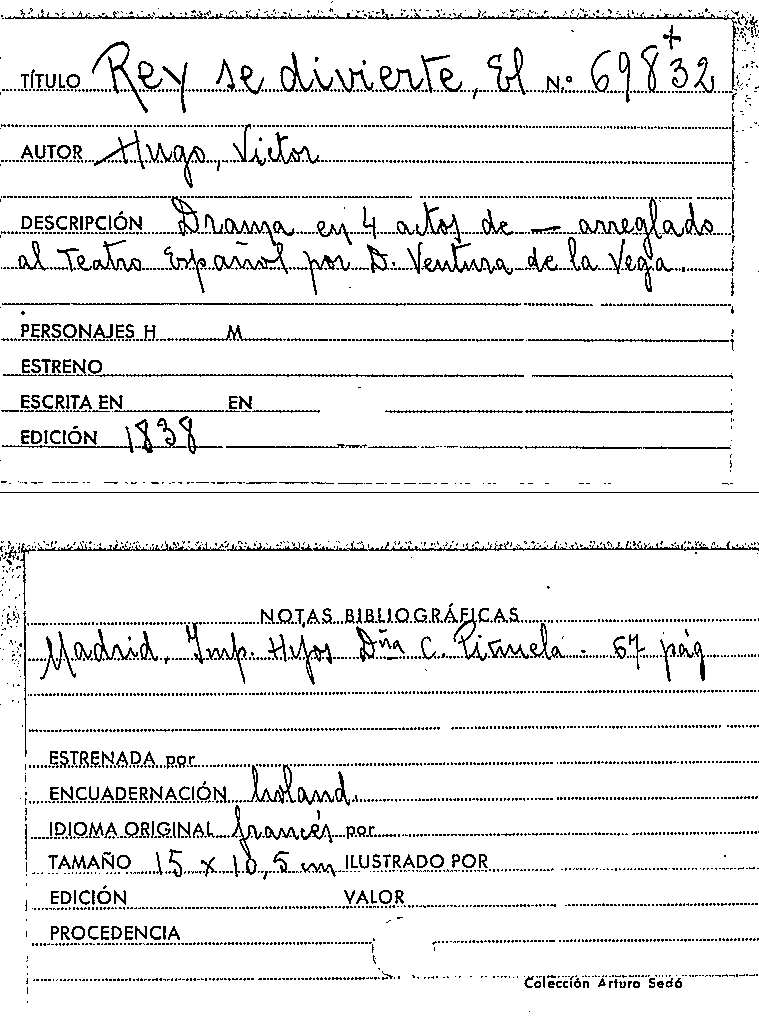 TÍTULO Rey se divierte, El N.º 69832
+
AUTOR Hugo, Victor
DESCRIPCIÓN Drama en 4 actos de — arreglado
al Teatro Español por D. Ventura de la Vega.
PERSONAJES H M
ESTRENO
ESCRITA EN EN
EDICIÓN 1838
NOTAS BIBLIOGRÁFICAS
Madrid, Imp. Hijos Dña C. Piñuela. 67 pág
ESTRENADA por
ENCUADERNACIÓN holand.
IDIOMA ORIGINAL francés por
TAMAÑO 15 x 10,5 cm ILUSTRADO POR
EDICIÓN VALOR
PROCEDENCIA
Colección Arturo Sedó